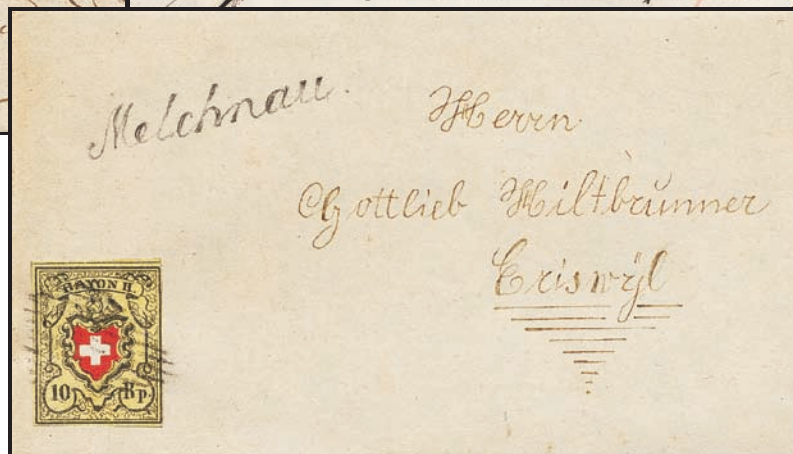 Melchnau.
Herrn
Gottlieb Hiltbrunner
Eriswÿl
RAYON II.
10 Rp.